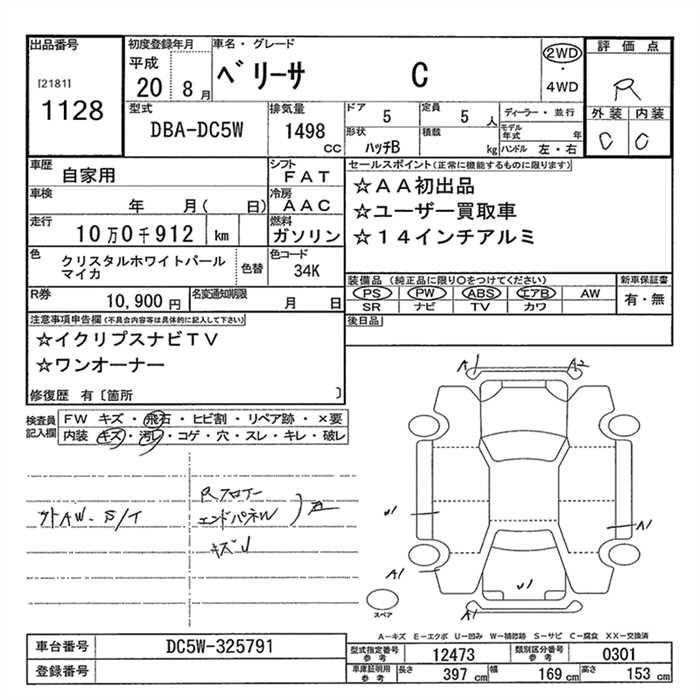 出品番号
[2181]
1128
初度登録年月
平成
20 8月
車名・グレード
ベリーサ C
2WD
・
4WD
評価点
R
外装 内装
C C
型式
DBA-DC5W
排気量
1498
CC
ドア 5
定員 5 人
形状 ハッチB
積載 kg
ディーラー・並行
モデル年式 年
ハンドル 左・右
車歴 自家用
シフト FAT
車検 年 月( 日)
冷房 AAC
走行 10万0千912 km
燃料 ガソリン
色 クリスタルホワイトパール
マイカ
色替
色コード 34K
R券 10,900円
名変通知期限 月 日
セールスポイント(正常に機能するものに限ります)
☆AA初出品
☆ユーザー買取車
☆14インチアルミ
装備品(純正品に限り○をつけてください)
PS PW ABS エアB AW
SR ナビ TV カワ
新車保証書
有・無
後日品
注意事項申告欄(不具合内容等は具体的に記入して下さい)
☆イクリプスナビTV
☆ワンオーナー
修復歴 有〔箇所 〕
検査員記入欄
FW キズ・飛石・ヒビ割・リペア跡・×要
内装 キズ・汚レ・コゲ・穴・スレ・キレ・破レ
Rフロアー
エンドパネル
キズU
A1 A2
U1
A1
A1
U1
A1
スペア
A－キズ E－エクボ U－凹み W－補修跡 S－サビ C－腐食 XX－交換済
車台番号 DC5W-325791
登録番号
型式指定番号参考 12473
類別区分番号参考 0301
車庫証明用参考 長さ 397 cm 幅 169 cm 高さ 153 cm